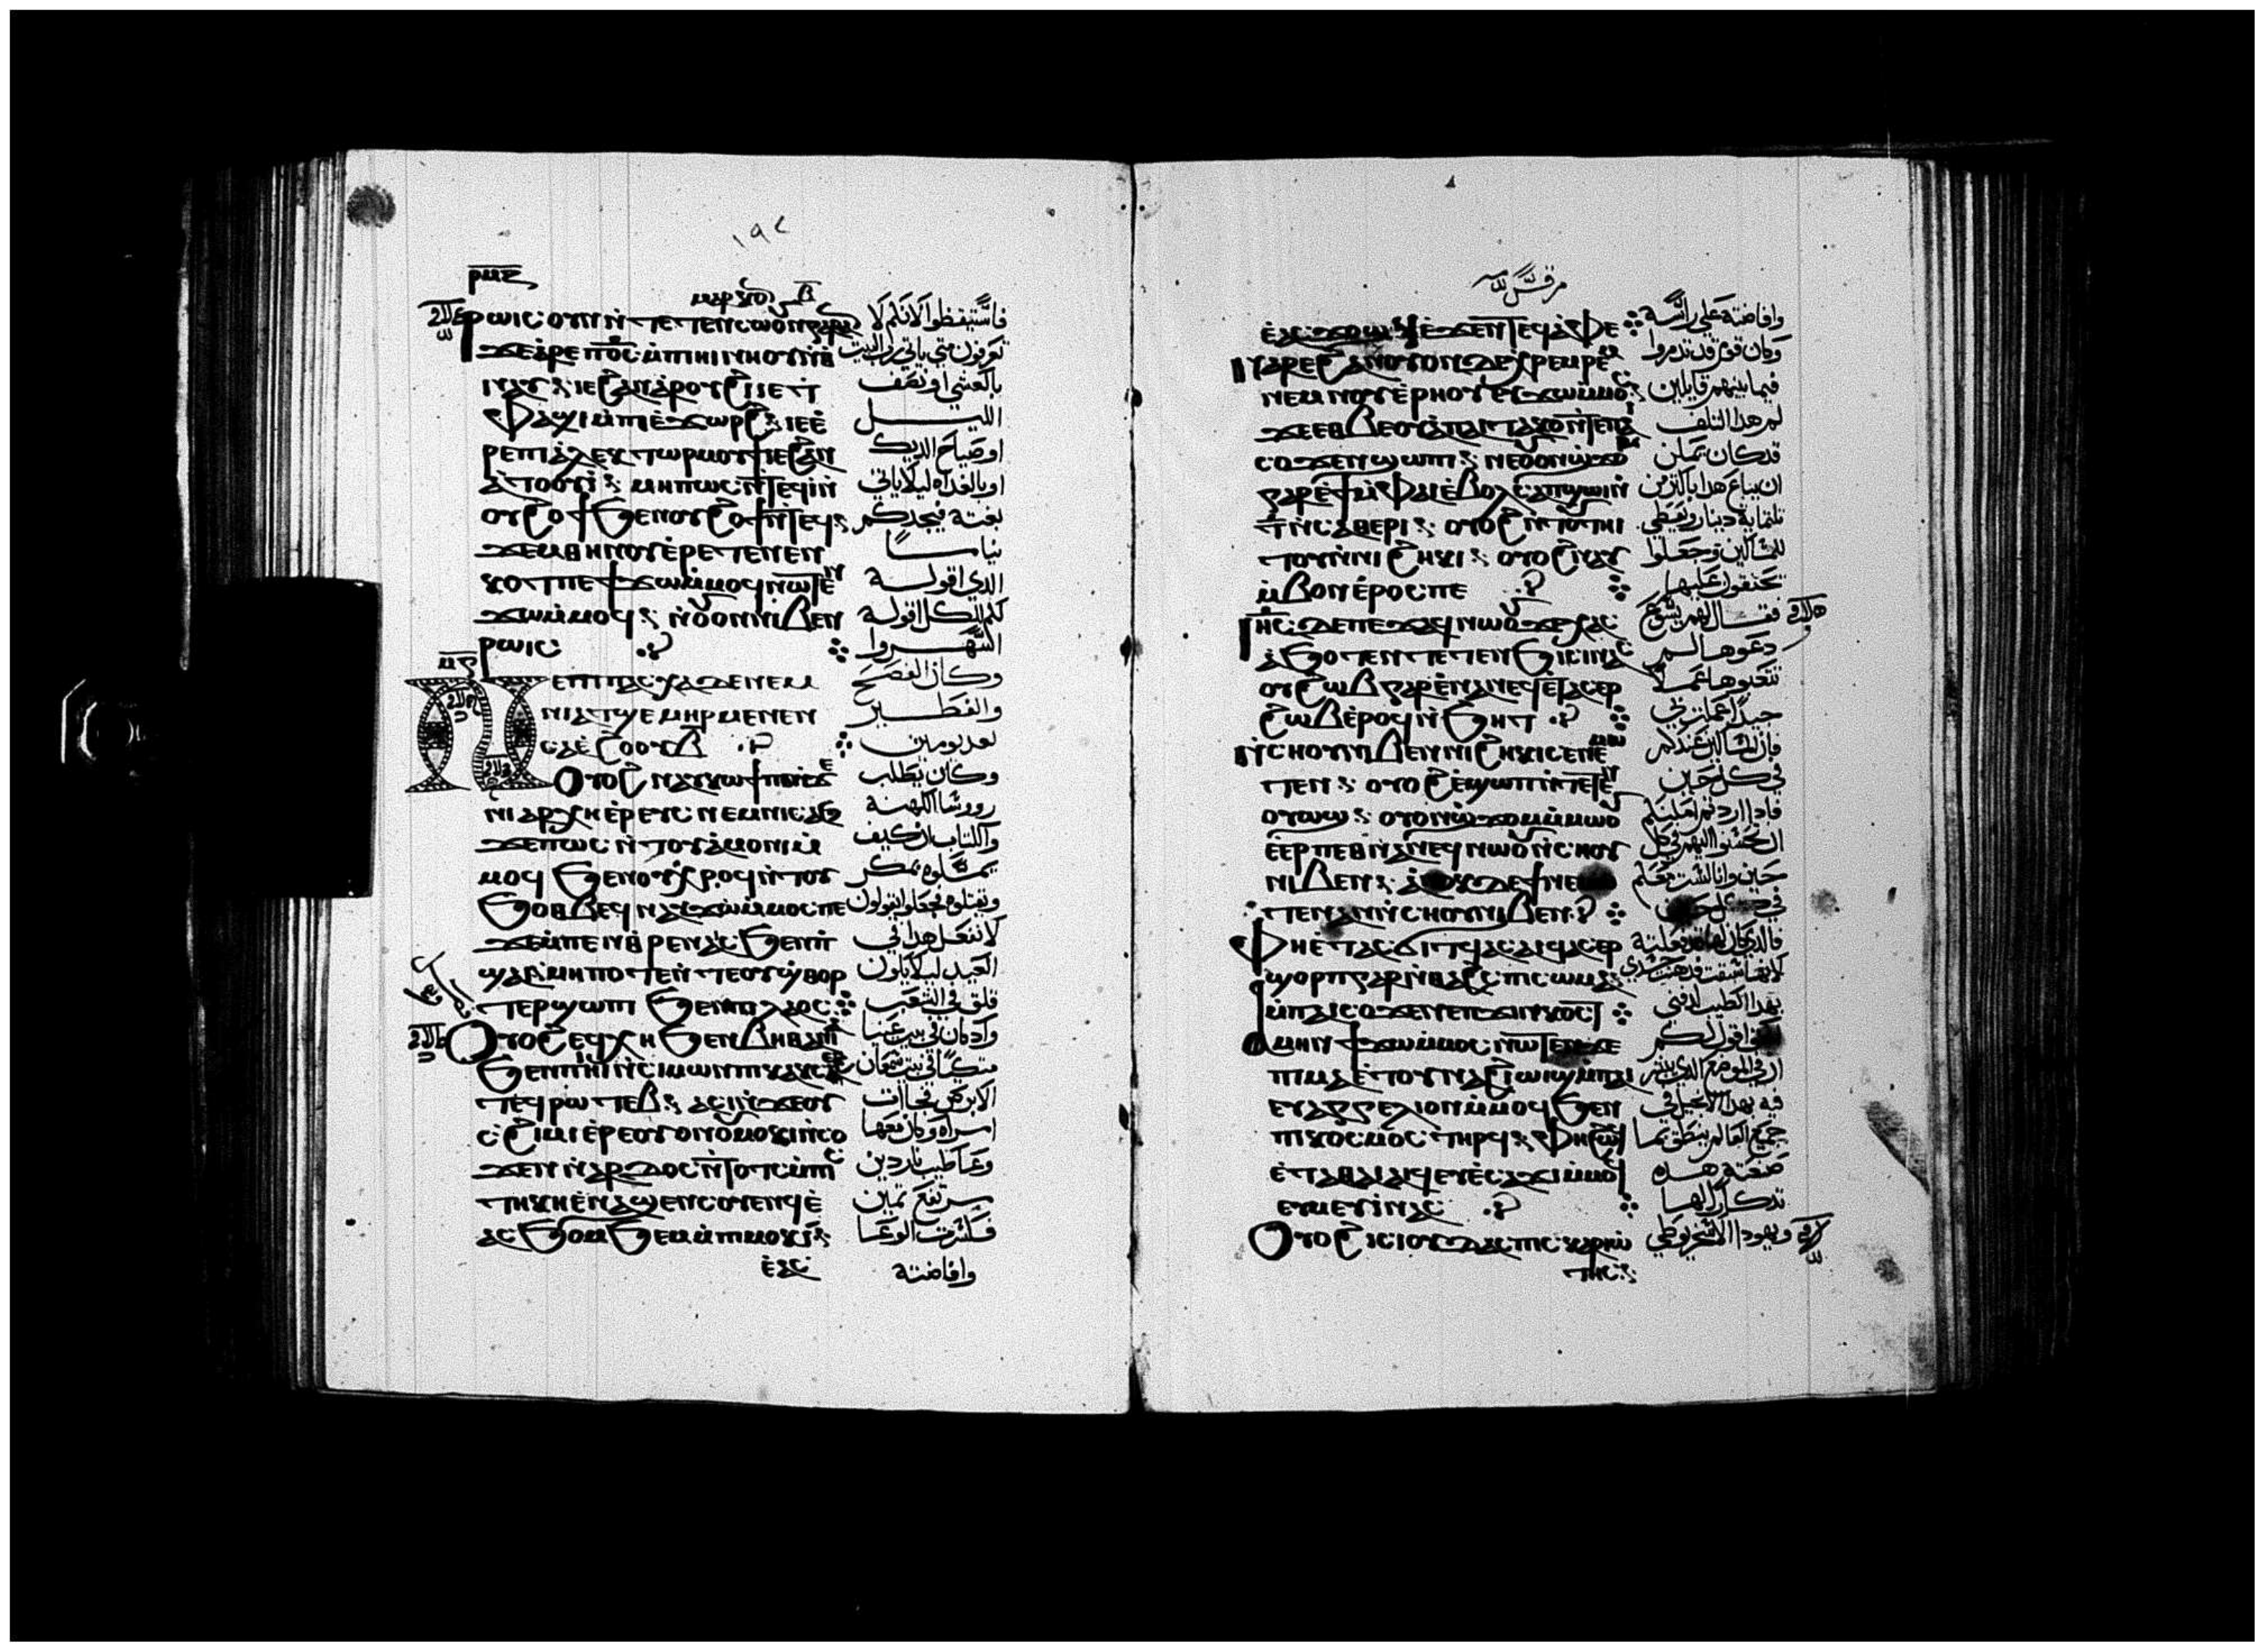 ١٩٨
ⲣⲙⲋ
ⲙⲁⲣⲕⲟⲛ ⲃ
ⲣⲱⲓⲥ ⲟⲩⲛ ⲛ̀ⲧⲉⲧⲉⲛⲥⲱⲟⲩⲛ ⲅⲁⲣ ⲁⲛ
ϫⲉ ⲁ̀ⲣⲉ ⲡ⳪ ⲙ̀ⲡⲏⲓ ⲛⲏⲟⲩ ⲛ̀ⲑ
ⲛⲁⲩ ⲓⲉ ϩⲁⲛⲁ̀ⲣⲟⲩϩⲓ ⲓⲉ ⲧ
ⲫⲁϣⲓ ⲙ̀ⲡⲓⲉ̀ϫⲱⲣϩ ⲓⲉ ⲉ̀
ⲣⲉ ⲡⲓⲁ̀ⲗⲉⲕⲧⲱⲣ ⲙⲟⲩϯ ⲓⲉ ϩⲁⲛ
ⲁ̀ⲧⲟⲟⲩⲓ̀ ⲙⲏⲡⲱⲥ ⲛ̀ⲧⲉϥⲓ̀ ⲛ̀
ⲟⲩϩⲟϯ ϧⲉⲛ ⲟⲩϩⲟϯ ⲛ̀ⲧⲉϥ
ϫⲉⲙ ⲑⲏⲛⲟⲩ ⲉ̀ⲣⲉⲧⲉⲛⲉⲛ
ⲕⲟⲧ ⲡⲉϯϫⲱ ⲙ̀ⲙⲟϥ ⲛⲱⲧⲉⲛ
ϫⲱ ⲙ̀ⲙⲟϥ ⲛ̀ⲟⲩⲟⲛ ⲛⲓⲃⲉⲛ
ⲣⲱⲓⲥ
ⲙⲋ
ⲛⲉ ⲡⲓⲡⲁⲥⲭⲁ ⲇⲉ ⲛⲉⲙ
ⲛⲓⲁⲧϣⲉⲙⲏⲣ ⲙⲉⲛⲉⲛ
ⲥⲁ ⲉ̀ϩⲟⲟⲩ ⲃ
Ⲟⲩⲟϩ ⲛⲁⲩⲕⲱϯ ⲡⲉ ⲛ̀ϫⲉ
ⲛⲓⲁⲣⲭⲏⲉ̀ⲣⲉⲩⲥ ⲛⲉⲙ ⲛⲓⲥⲁϧ
ϫⲉ ⲡⲱⲥ ⲛ̀ⲧⲟⲩⲁ̀ⲙⲟⲛⲓ ⲙ̀
ⲙⲟϥ ϧⲉⲛ ⲟⲩⲭⲣⲟϥ ⲛ̀ⲧⲟⲩ
ϧⲟⲑⲃⲉϥ ⲛⲁⲩϫⲱ ⲙ̀ⲙⲟⲥ ⲡⲉ
ϫⲉ ⲙ̀ⲡⲉⲛⲑⲣⲉⲛⲁⲥ ϧⲉⲛ ⲡ̀
ϣⲁⲓ ⲙⲏⲡⲟⲧⲉ ⲛ̀ⲧⲉ ⲟⲩϣ̀ⲑⲟⲣ
ⲧⲉⲣ ϣⲱⲡⲓ ϧⲉⲛ ⲡⲓⲗⲁⲟⲥ
Ⲟⲩⲟϩ ⲉϥⲭⲏ ϧⲉⲛ ⲃⲏⲑⲁⲛⲓⲁ
ϧⲉⲛ ⲡ̀ⲏⲓ ⲛ̀ⲥⲓⲙⲱⲛ ⲡⲓⲕⲁⲕⲥⲉϩⲧ
ⲉϥⲣⲱⲧⲉⲃ ⲁⲥⲓ̀ ⲛ̀ϫⲉ ⲟⲩ
ⲥ̀ϩⲓⲙⲓ ⲉ̀ⲣⲉ ⲟⲩⲟⲛ ⲟⲩⲙⲟⲕⲓ ⲛ̀ⲥⲟ
ϫⲉⲛ ⲛ̀ⲛⲁⲣⲇⲟⲥ ⲛ̀ⲧⲟⲧⲥ ⲙ̀ⲡⲓⲥ
ⲧⲏⲕⲏ ⲉ̀ⲛⲁϣⲉⲛⲥⲟⲩⲉⲛϥ ⲉ̀
ⲁⲥϧⲟⲙϧⲉⲙ ⲙ̀ⲡⲓⲙⲟⲕⲓ
ⲉ̀ⲁⲥ
فاستيقظوا الانكم لا
تعرفون متى ياتي رب البيت
بالعشي او نصف
الليل
او صياح الديك
او بالغداه ليلا ياتي
بغتة فيجدكم
نياما
الذي اقوله
لكم للكل اقوله
اسهروا
وكان الفصح
والفطير
بعد يومين
وكان يطلب
رووسا الكهنة
والكتاب ان كيف
يمسكوه بمكر
ويقتلوه فجعلوا يقولون
لا نفعل هذا في
العيد ليلا يكون
قلق في الشعب
واذ كان في بيت عنيا
متكيا في بيت سمعان
الابرص فجاات
امراه وكان معها
وعا طيب ناردين
مرتفع تمين
فكسرت الوعا
وافاضته
مرقس
ⲉ̀ⲁⲥϫⲟϣϥ ⲉ̀ϫⲉⲛ ⲧⲉϥⲁ̀ⲫⲉ
ⲛⲁⲣⲉ ϩⲁⲛⲟⲩⲟⲛ ⲇⲉ ⲭⲣⲉⲙⲣⲉⲙ
ⲛⲉⲙ ⲛⲟⲩⲉ̀ⲣⲏⲟⲩ ⲉⲩϫⲱ ⲙ̀ⲙⲟⲥ
ϫⲉ ⲉⲑⲃⲉⲟⲩ ⲁ̀ ⲡⲁⲓⲧⲁⲕⲟ ⲛ̀ⲧⲉ ⲡⲁⲓ
ⲥⲟϫⲉⲛ ϣⲱⲡⲓ ⲛⲉ ⲟⲩⲟⲛ ϣ̀ϫⲟⲙ
ⲅⲁⲣ ⲉ̀ϯ ⲙ̀ⲫⲁⲓ ⲉ̀ⲃⲟⲗ ⲥⲁⲡϣⲱⲓ ⲛ̀
ⲧ̅ ⲛ̀ⲥⲁⲑⲉⲣⲓ ⲟⲩⲟϩ ⲛ̀ⲧⲟⲩⲧⲏⲓ
ⲧⲟⲩ ⲛ̀ⲛⲓϩⲏⲕⲓ ⲟⲩⲟϩ ⲛⲁⲩ
ⲙ̀ⲃⲟⲛ ⲉ̀ⲣⲟⲥ ⲡⲉ
Ⲓⲏⲥ ⲇⲉ ⲡⲉϫⲁϥ ⲛⲱⲟⲩ ϫⲉ ⲭⲁⲥ
ⲁ̀ϧⲟⲧⲉⲛ ⲧⲉⲧⲉⲛϯϧⲓⲥⲓ ⲛⲁⲥ
ⲟⲩϩⲱⲃ ⲅⲁⲣ ⲉ̀ⲛⲁⲛⲉϥ ⲉ̀ⲧⲁⲥⲉⲣ
ϩⲱⲃ ⲉ̀ⲣⲟϥ ⲛ̀ϧⲏⲧ
ⲛ̀ⲥⲏⲟⲩ ⲛⲓⲃⲉⲛ ⲛⲓϩⲏⲕⲓ ⲥⲉ ⲛⲉⲙⲱ
ⲧⲉⲛ ⲟⲩⲟϩ ⲉ̀ϣⲱⲡ ⲛ̀ⲧⲉⲧⲉⲛ
ⲟⲩⲱϣ ⲟⲩⲟⲛ ϣ̀ϫⲟⲙ ⲙ̀ⲙⲱⲟⲩ
ⲉ̀ⲉⲣ ⲡⲉⲑⲛⲁⲛⲉϥ ⲛⲱⲟⲩ ⲛ̀ⲥⲏⲟⲩ
ⲛⲓⲃⲉⲛ
ⲧⲉⲛ ⲁⲛ ⲛ̀ⲥⲏⲟⲩ ⲛⲓⲃⲉⲛ
Ⲫⲏ ⲉ̀ⲧⲁⲥϭⲓⲧϥ ⲁⲥⲁⲓϥ ⲁⲥⲉⲣ
ϣⲟⲣⲡ ⲅⲁⲣ ⲛ̀ⲑⲁϩⲥ ⲡⲓⲥⲱⲙⲁ
ⲙ̀ⲡⲁⲓⲥⲟϫⲉⲛ ⲉ̀ⲡϫⲓⲛⲕⲟⲥⲧ
Ⲁⲙⲏⲛ ϯϫⲱ ⲙ̀ⲙⲟⲥ ⲛⲱⲧⲉⲛ ϫⲉ
ⲡⲓⲙⲁ ⲉ̀ⲧⲟⲩⲛⲁϩⲓⲱⲓϣ ⲙ̀ⲡⲁⲓ
ⲉⲩⲁⲅⲅⲉⲗⲓⲟⲛ ⲙ̀ⲙⲟϥ ϧⲉⲛ
ⲡⲓⲕⲟⲥⲙⲟⲥ ⲧⲏⲣϥ ⲫⲏ ϩⲱϥ
ⲉ̀ⲧⲁ ⲑⲁⲓ ⲁⲓϥ ⲉⲩⲉ̀ⲥⲁϫⲓ ⲙ̀ⲙⲟϥ
ⲉⲩⲙⲉⲩⲓ̀ ⲛⲁⲥ
Ⲟⲩⲟϩ ⲓⲥ ⲓⲟⲩⲇⲁⲥ ⲡⲓⲥⲕⲁⲣⲓⲱ
ⲧⲏⲥ
وافاضته على راسه
وكان قوم قد تذمروا
فيما بينهم قايلين
لم هذا التلف
قد كان يمكن
ان يباع هذا باكثر من
ثلثماية دينار وتعطي
للمساكين وجعلوا
يحنقون عليها
فقال لهم يسوع
دعوها لم
تتعبوها عملا
جيدا عملته بي
فان المساكين عندكم
في كل حين
فاذا اردتم امكنكم
ان تحسنوا اليهم في كل
حين وانا لست معكم
في كل حين
لانها سبقت فدهنت جسدي
بهذا الطيب لدفني
اقول لكم
ان في الموضع الذي يبشر
فيه بهذا الانجيل في
جميع العالم ينطق بما
صنعته هذه
تذكارا لها
ويهودا الاسخريوطي